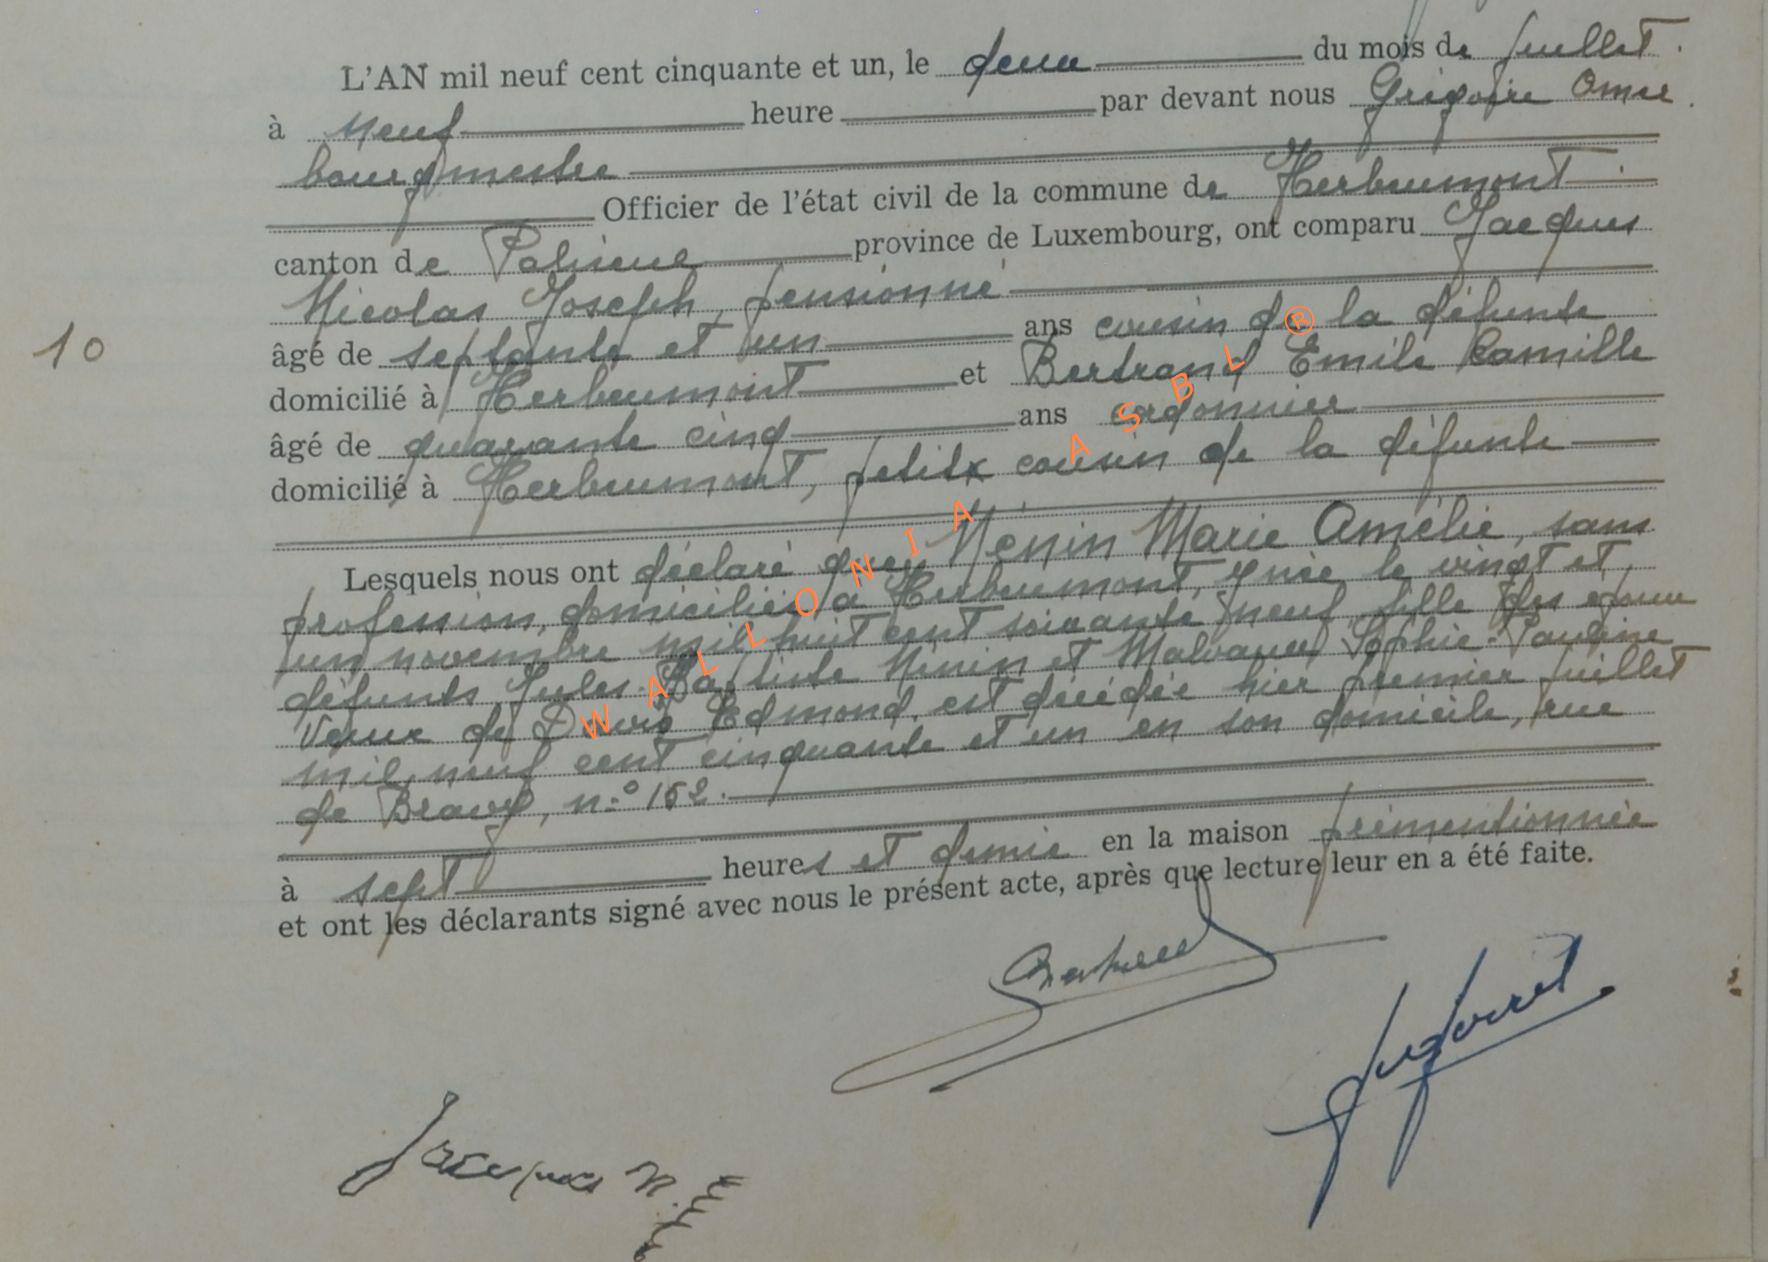 L'AN mil neuf cent cinquante et un, le deux du mois de juillet.
à neuf heure par devant nous Grégoire Omer
bourgmestre
Officier de l'état civil de la commune de Herbeumont
canton de Paliseul province de Luxembourg, ont comparu Jacques
Nicolas Joseph, pensionné
âgé de septante et un ans cousin de la défunte
domicilié à Herbeumont et Bertrand Emile Camille
âgé de quarante cinq ans cordonnier
domicilié à Herbeumont, petit cousin de la défunte
10
Lesquels nous ont déclaré que Nénin Marie Amélie, sans
profession, domiciliée à Herbeumont, y née le vingt et
un novembre mil huit cent soixante neuf, fille des époux
défunts Jules-Baptiste Nénin et Malvaux Sophie-Pauline
Veuve de Edmond, est décédée hier premier juillet
mil neuf cent cinquante et un en son domicile, rue
de n.° 152.
à sept heures et demie en la maison prémentionnée
et ont les déclarants signé avec nous le présent acte, après que lecture leur en a été faite.
Jacques N.
WALLONIA ASBL ®